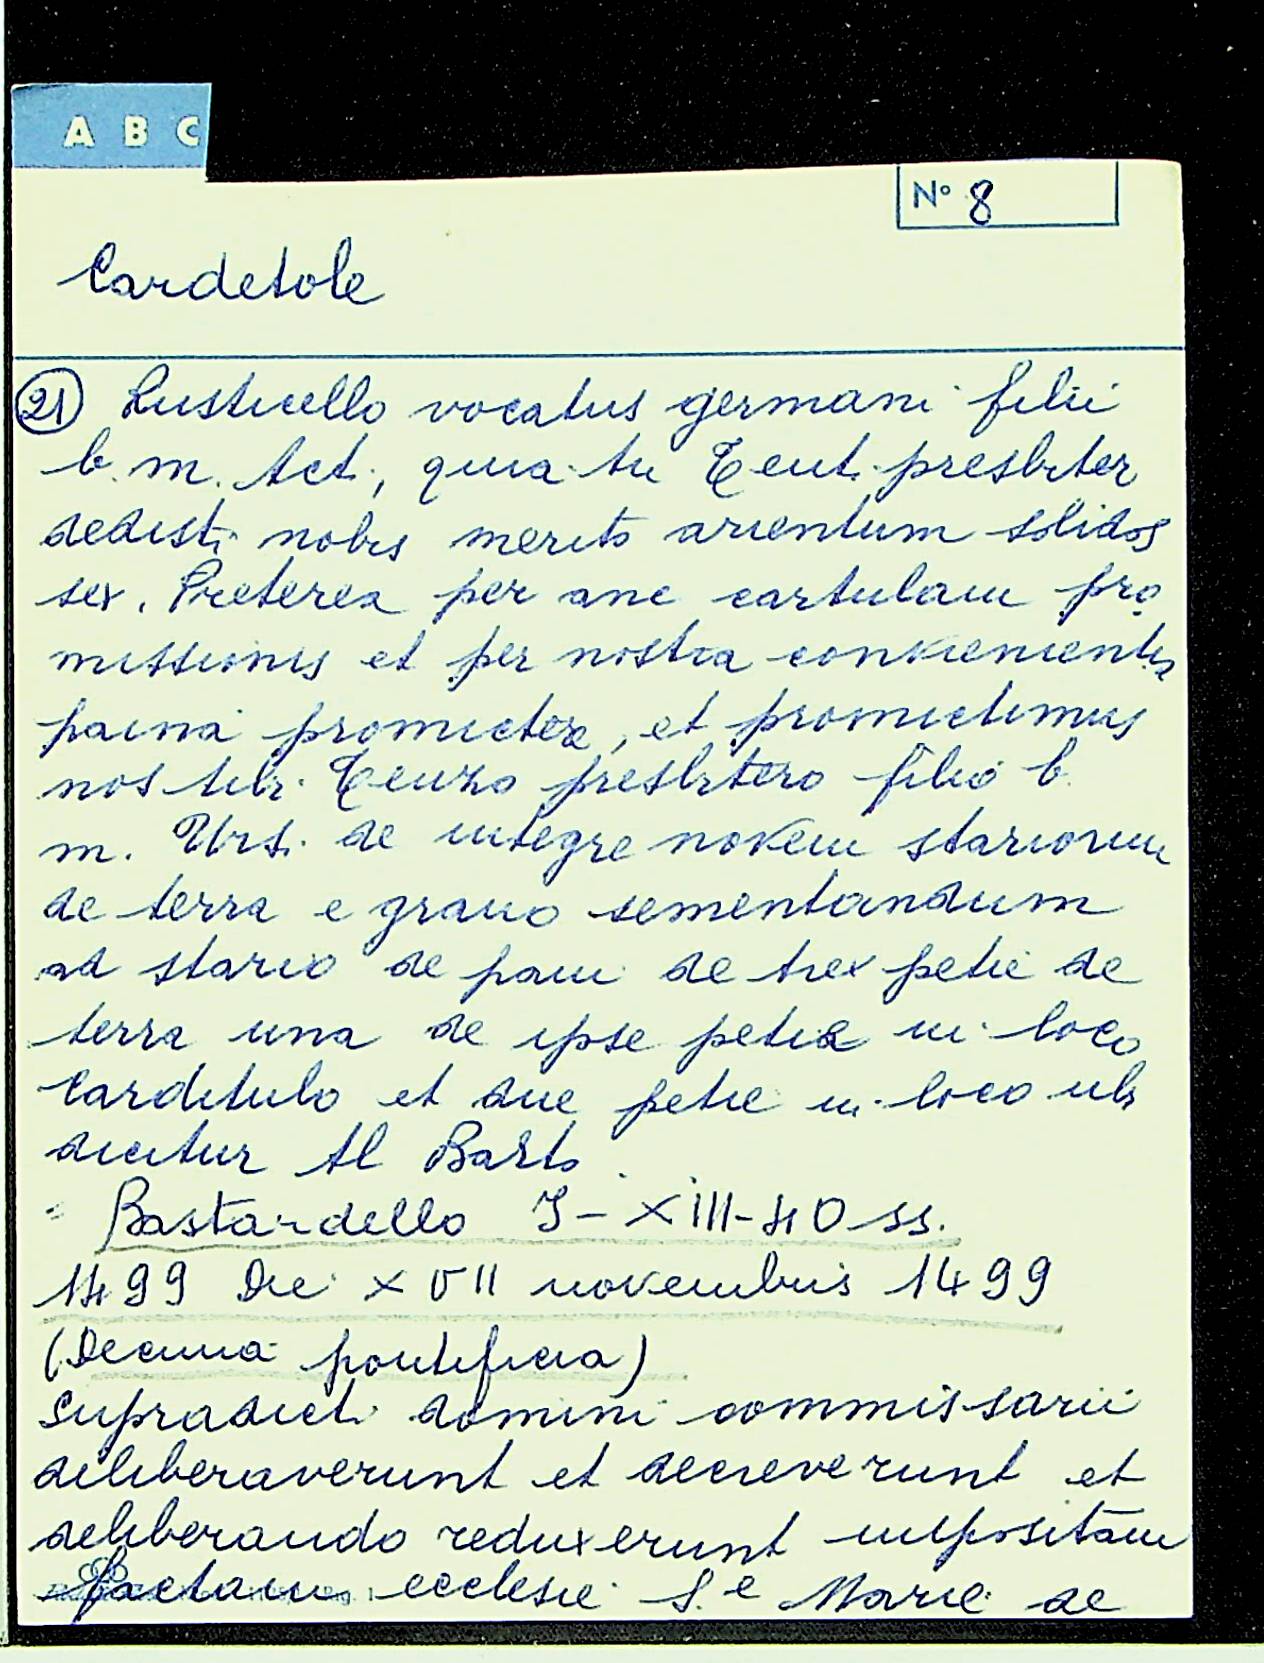 A B C
N° 8
Cardetole
21 Rusticello vocatus germani filii
b. m. Act., quia tu Teut. presbiter
dedisti nobis merito arientum solidos
sex. Preterea per anc cartulam pro
missionis et per nostra convenientia
paina promictere, et promictimus
nos tibi Teuzo presbitero filio b.
m. Ursi de integre novem stariorum
de terra e grano sementandum
ad stario de pani de trex petie de
terra una de ipse petia in loco
Carditulo et due petie in loco ubi
dicitur Al
Bastardello I - XIII - 40 ss.
1499 Die XVII novembris 1499
(Decima pontificia)
Supradicti domini commissarii
deliberaverunt et decreverunt et
deliberando reduxerunt impositam
factam ecclesie S.e Marie de